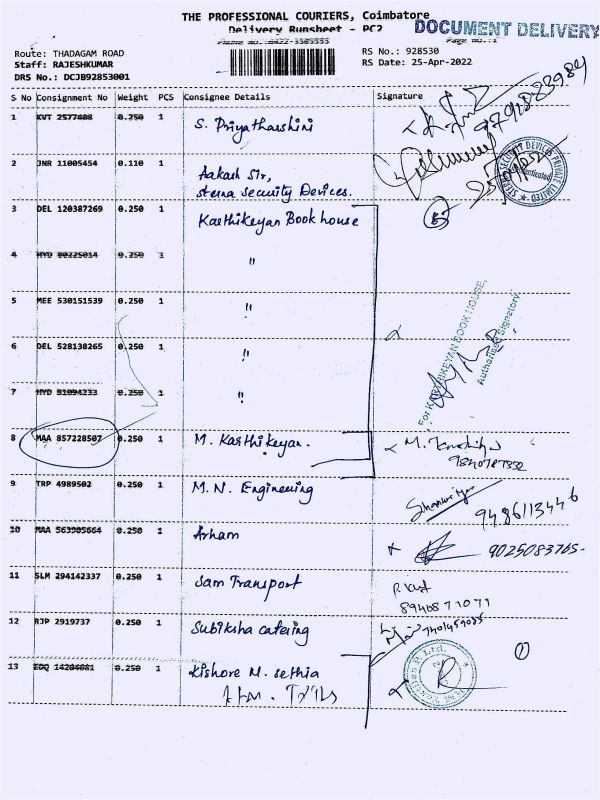 THE PROFESSIONAL COURIERS, Coimbatore
Delivery Runsheet - PC2
DOCUMENT DELIVERY
Route: THADAGAM ROAD
Staff: RAJESHKUMAR
DRS No.: DCJB92853001
RS No.: 928530
RS Date: 25-Apr-2022
S No Consignment No Weight PCS Consignee Details Signature
1 KVT 2577408 0.250 1 S. Priyatharshini
2 JNR 11005454 0.110 1 Aakash Sir,
stena security Devices.
3 DEL 120387269 0.250 1 Karthikeyan Book house
4 HYD 80225014 0.250 1 "
5 MEE 530151539 0.250 1 "
6 DEL 528138265 0.250 1 "
7 HYD 81094233 0.250 1 "
For KARTHIKEYAN BOOK HOUSE,
Authorised signatory
8 MAA 857228507 0.250 1 M. Karthikeyan.
9 TRP 4989502 0.250 1 M.N. Engineering
9486113446
10 MAA 563905664 0.250 1 Arham
9025083765-
11 SLM 294142337 0.250 1 Sam Transport
8940871071
12 RJP 2919737 0.250 1 Subiksha catering
13 EDQ 14204081 0.250 1 Kishore M. sethia